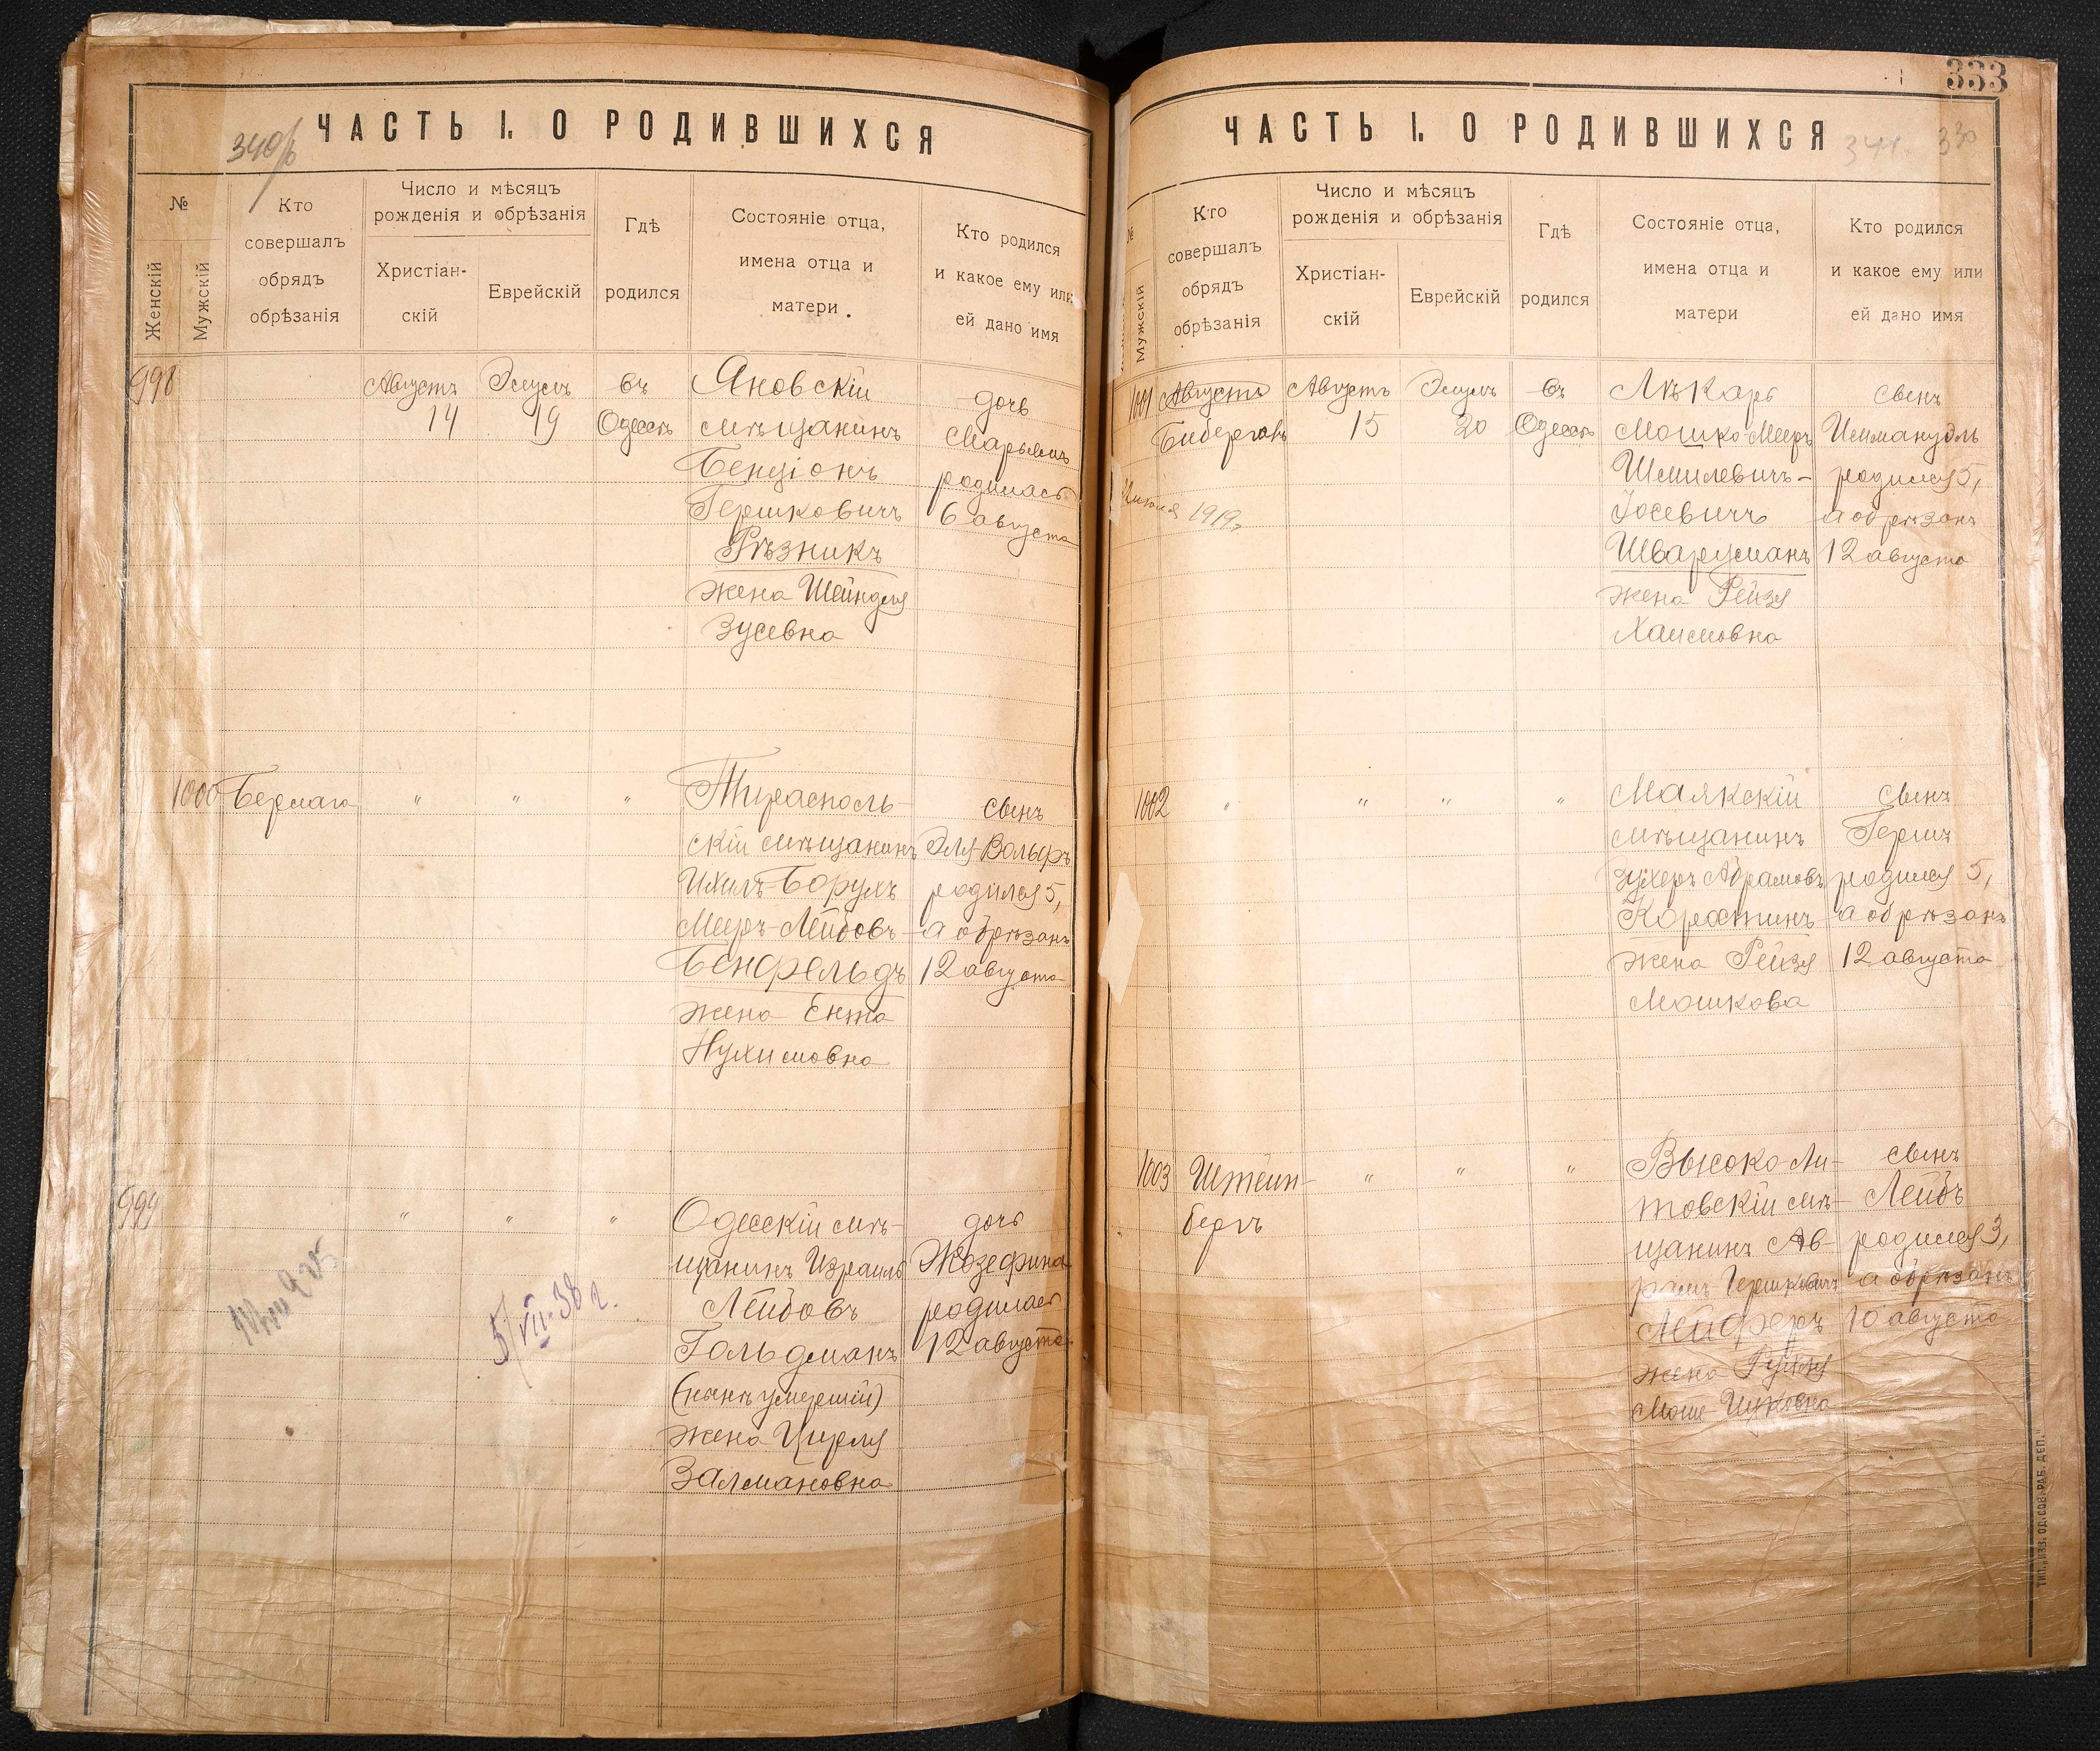 340/б
ЧАСТЬ I. О РОДИВШИХСЯ
№
Женскій
Мужскій
Кто
совершалъ
обрядъ
обрѣзанія
Число и мѣсяцъ
рожденія и обрѣзанія
Христіан-
скій
Еврейскій
Гдѣ
родился
Состояніе отца,
имена отца и
матери
Кто родился
и какое ему или
ей дано имя
998
Августъ
14
Элулъ
19
въ
Одессѣ
Яновскій
мѣщанинъ
Бенціонъ
Гершковичъ
Рѣзникъ
жена Шейндля
Зусевна
дочь
Марьямъ
родилась
6 августа
1000
Бермаго
"
"
"
Тирасполь-
скій мѣщанинъ
Ихилъ-Борухъ
Мееръ-Лейбовъ
Бенфельдъ
жена Ента
Нухимовна
сынъ
Эля-Вольфъ
родился 5,
а обрѣзанъ
12 августа
999
"
"
"
5/VII-38 г.
Одесскій мѣ-
щанинъ Израиль
Лейбовъ
Гольдманъ
(нынѣ умершій)
жена Цирля
Залмановна
дочь
Жозефина
родилась
12 августа
333
ЧАСТЬ I. О РОДИВШИХСЯ
341. 330
№
Мужскій
Кто
совершалъ
обрядъ
обрѣзанія
Число и мѣсяцъ
рожденія и обрѣзанія
Христіан-
скій
Еврейскій
Гдѣ
родился
Состояніе отца,
имена отца и
матери
Кто родился
и какое ему или
ей дано имя
1001
Августа
Бибергалъ
1919г
Августъ
15
Элулъ
20
въ
Одессѣ
Лѣкарь
Мошко-Мееръ
Шмилевичъ-
Іосевичъ
Шварцманъ
жена Рейзя
Хаимовна
сынъ
Иммануэль
родился 5,
а обрѣзанъ
12 августа
1002
"
"
"
"
Маякскій
мѣщанинъ
Зухеръ Абрамовъ
Корсстинъ
жена Рейзя
Мошкова
сынъ
Гершъ
родился 5,
а обрѣзанъ
12 августа
1003
Штейн-
бергъ
"
"
"
Высоко-Ли-
товскій мѣ-
щанинъ Ав-
рамъ Гершковичъ
Лейферъ
жена
Мошe Ицковна
сынъ
Лейбъ
родился 3,
а обрѣзанъ
10 августа
ТИП. „ИЗВ. ОД. СОВ. РАБ. ДЕП."